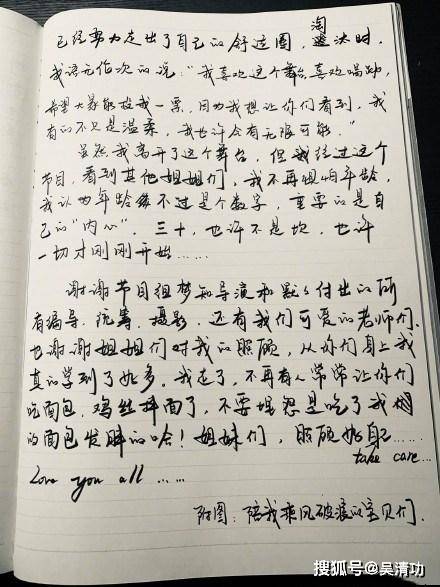 已经努力走出了自己的舒适圈，淘汰时，
我语无伦次的说："我喜欢这个舞台，喜欢唱跳，
希望大家能投我一票，因为我想让你们看到，我
有的不只是温柔，我也许会有无限可能。"
虽然我离开了这个舞台，但我经过这个
节目，看到其他姐姐们，我不再惧怕年龄，
我认为年龄不过是个数字，重要的是自
己的"内心"。三十，也许不是坎，也许
一切才刚刚开始……
谢谢节目组梦知导演和默默付出的所
有编导，统筹，摄影，还有我们可爱的老师们，
也谢谢姐姐们对我的照顾，从你们身上我
真的学到了好多。我走了，不再有人常常让你们
吃面包，鸡丝拌面了，不要埋怨是吃了我
的面包发胖的哈！姐妹们，照顾好自己……
take care...
Love you all ……
附图：陪我乘风破浪的宝贝们．
搜狐号@吴清功